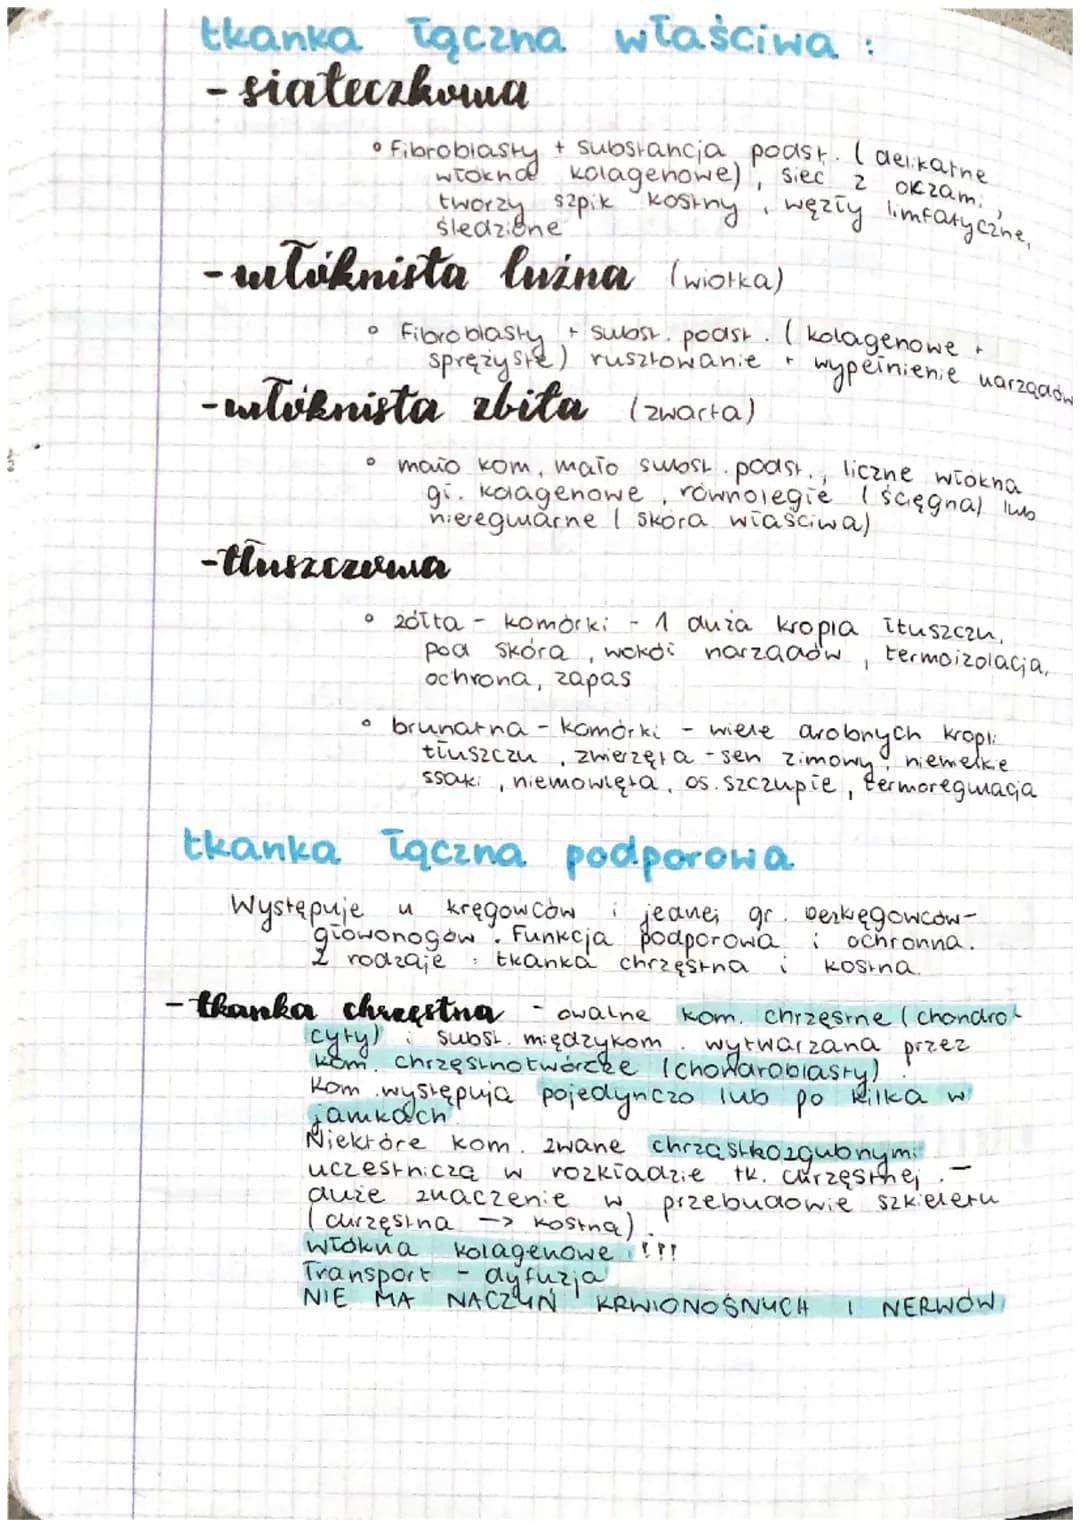 tkanka łączna właściwa:
- siateczkowa
• Fibroblasty + substancja podst. (delikatne
włókna kolagenowe), sieć z okzami,
tworzy szpik kostny, węzły limfatyczne,
śledzione
- włóknista luźna (wiotka)
• Fibroblasty + subst. podst. (kolagenowe +
sprężyste) rusztowanie + wypełnienie narządów
- włóknista zbita (zwarta)
• mało kom, mało subst. podst., liczne włókna
gł. kolagenowe, równoległe (ścięgna) lub
nieregularne (skóra właściwa)
- tłuszczowa
• żółta - komórki - 1 duża kropla tłuszczu,
pod skórą, wokół narządów, termoizolacja,
ochrona, zapas
• brunatna - komórki - wiele drobnych kropli
tłuszczu, zwierzęta - sen zimowy, niewielkie
ssaki, niemowlęta, os. szczupłe, termoregulacja
tkanka łączna podporowa
Występuje u kręgowców i jednej gr. bezkręgowców-
głowonogów. Funkcja podporowa i ochronna.
2 rodzaje: tkanka chrzęstna i kostna
- tkanka chrzęstna - owalne kom. chrzęstne (chondro-
cyty) i subst. międzykom. wytwarzana przez
kom. chrzęstnotwórcze (chondroblasty).
Kom. występują pojedynczo lub po kilka w
jamkach
Niektóre kom. zwane chrząstkozgubnymi
uczestniczą w rozkładzie tk. chrzęstnej. -
duże znaczenie w przebudowie szkieletu
(chrzęstna -> kostna).
włókna kolagenowe !!!
Transport - dyfuzja
NIE MA NACZYŃ KRWIONOŚNYCH I NERWÓW